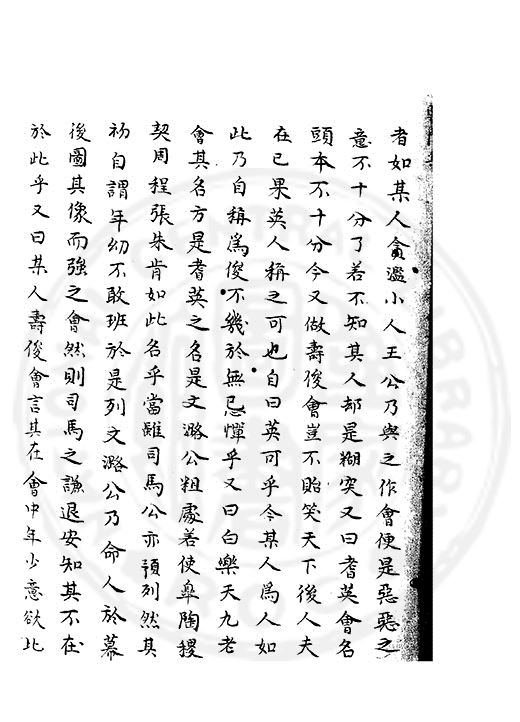 者如某人貪濫小人王公乃與之作會便是惡惡之
意不十分了若不知其人却是糊突又曰耆英會名
頭本不十分今又做壽俊會豈不貽笑天下後人夫
在已果英人稱之可也自曰英可乎今某人爲人如
此乃自稱爲俊不幾於無忌憚乎又曰白樂天九老
會其名方是耆英之名是文潞公粗處若使臯陶稷
契周程張朱肯如此名乎當雖司馬公亦預列然其
初自謂年幼不敢班於是列文潞公乃命人於幕
後圖其像而強之會然則司馬之謙退安知其不在
於此乎又曰某人壽俊會言其在會中年少意欲比